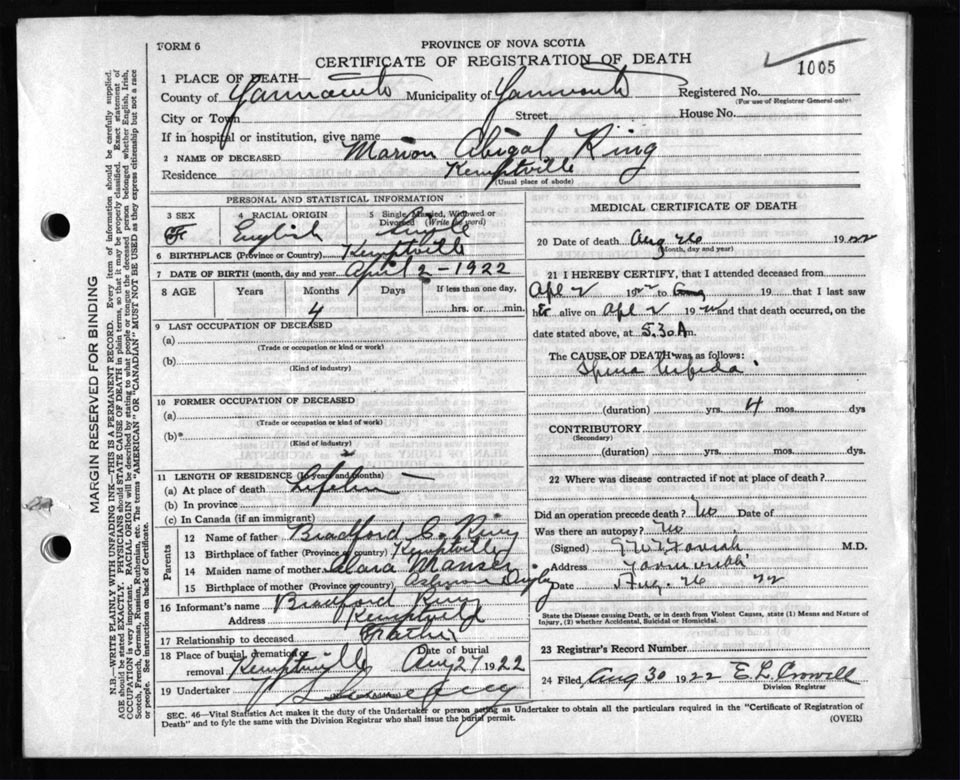 FORM 6
PROVINCE OF NOVA SCOTIA
CERTIFICATE OF REGISTRATION OF DEATH
1005
1 PLACE OF DEATH—
County of Yarmouth Municipality of Yarmouth Registered No.
(For use of Registrar General only)
City or Town Street House No.
If in hospital or institution, give name
2 NAME OF DECEASED Marion Abigal King
Residence Kemptville
(Usual place of abode)
PERSONAL AND STATISTICAL INFORMATION
3 SEX 4 RACIAL ORIGIN 5 Single, Married, Widowed or Divorced (Write the word)
F English Single
6 BIRTHPLACE (Province or Country) Kemptville
7 DATE OF BIRTH (month, day and year) April 2 - 1922
8 AGE Years Months Days If less than one day,
4 hrs. or min.
9 LAST OCCUPATION OF DECEASED
(a)
(Trade or occupation or kind or work)
(b)
(Kind of industry)
10 FORMER OCCUPATION OF DECEASED
(a)
(Trade or occupation or kind of work)
(b)
(Kind of industry)
11 LENGTH OF RESIDENCE (in years and months)
(a) At place of death Lifetime
(b) In province
(c) In Canada (if an immigrant)
Parents
12 Name of father Bradford C. King
13 Birthplace of father (Province or country) Kemptville
14 Maiden name of mother Clara
15 Birthplace of mother (Province or country) Digby
16 Informant's name Bradford King
Address Kemptville
17 Relationship to deceased Father
18 Place of burial, cremation or removal Kemptville Date of burial Aug 27 1922
19 Undertaker
MEDICAL CERTIFICATE OF DEATH
20 Date of death Aug 26 1922
(Month, day and year)
21 I HEREBY CERTIFY, that I attended deceased from
Apl 2 1922 to 19 that I last saw
her alive on Apl 2 1922 and that death occurred, on the
date stated above, at 5.30 A m.
The CAUSE OF DEATH was as follows:
Spina bifida
(duration) yrs. 4 mos. dys
CONTRIBUTORY
(Secondary)
(duration) yrs. mos. dys
22 Where was disease contracted if not at place of death?
Did an operation precede death? No Date of
Was there an autopsy? No
(Signed) M.D.
Address Yarmouth
Date Aug. 26 22
State the Disease causing Death, or in death from Violent Causes, state (1) Means and Nature of
Injury, (2) whether Accidental, Suicidal or Homicidal.
23 Registrar's Record Number
24 Filed Aug 30 1922 E. L. Crowell
Division Registrar
SEC. 46—Vital Statistics Act makes it the duty of the Undertaker or person acting as Undertaker to obtain all the particulars required in the "Certificate of Registration of
Death" and to fyle the same with the Division Registrar who shall issue the burial permit.
(OVER)
MARGIN RESERVED FOR BINDING
N.B.—WRITE PLAINLY WITH UNFADING INK—THIS IS A PERMANENT RECORD. Every item of information should be carefully supplied.
AGE should be stated EXACTLY. PHYSICIANS should STATE CAUSE OF DEATH in plain terms, so that it may be properly classified. Exact statement of
OCCUPATION is very important. RACIAL ORIGIN will be described by stating to what people or tongue the deceased person belonged whether English, Irish,
Scotch, French, German, Russian, Ruthenian, etc. The terms "AMERICAN" or "CANADIAN" MUST NOT BE USED as they express citizenship but not a race
or people. See instructions on back of Certificate.